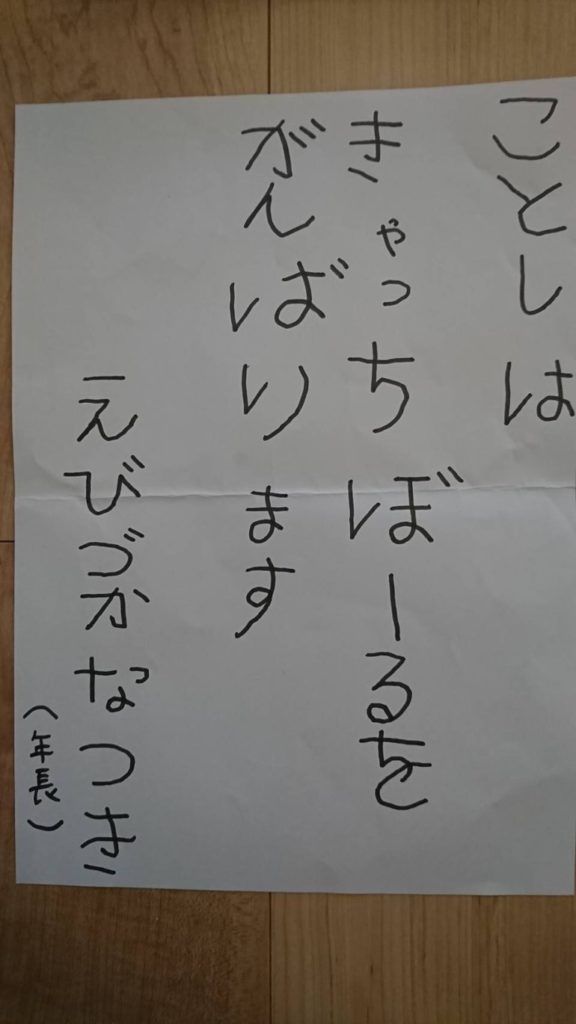 ことしは
きゃっちぼーるを
がんばります
えびづかなつき
（年長）